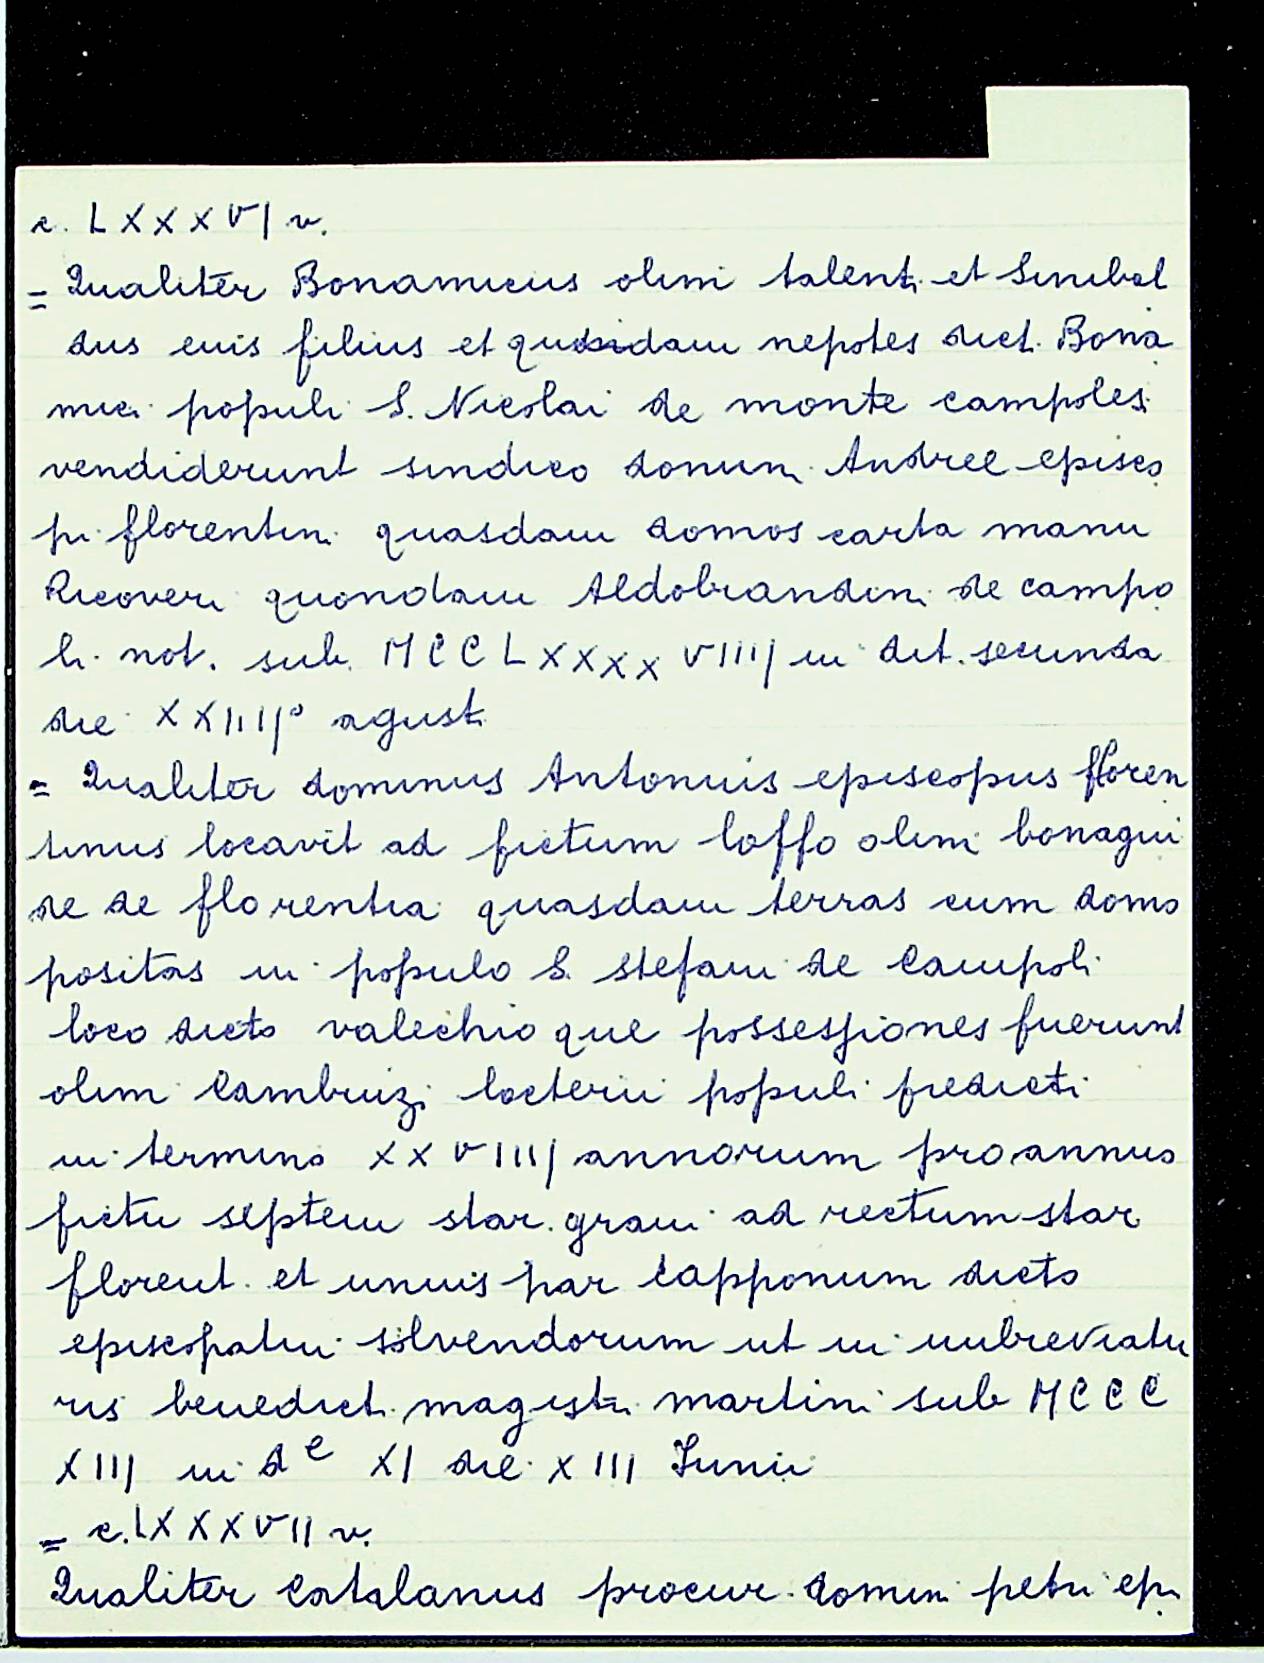 c. LXXXVI v.
= Qualiter Bonamicus olim talenti et Sinibal
dus eius filius et quidam nepotes dict. Bona
mici populi S. Nicolai de monte campolesi
vendiderunt sindico domini Andree episco
pi florentini quasdam domos carta manu
Ricoveri quondam Aldobrandini de campo
li not. sub MCCLXXXXVIIII in dit. secunda
die XXIIII° agusti
= Qualiter dominus Antonius episcopus floren
tinus locavit ad fictum loffo olim bonagui
de de florentia quasdam terras cum domo
positas in populo S. Stefani de Campoli
loco dicto valechio que possessiones fuerunt
olim Cambiuzi locterii populi predicti
in termino XXVIIII annorum pro annuo
fictu septem star. grani ad rectum star
florent. et unius par capponum dicto
episcopatui solvendorum ut in imbreviatu
ris benedicti magistri martini sub MCCC
XIII in d e XI die XIII Junii
= c. LXXXVII v.
Qualiter Catalanus procur. domini petri epi